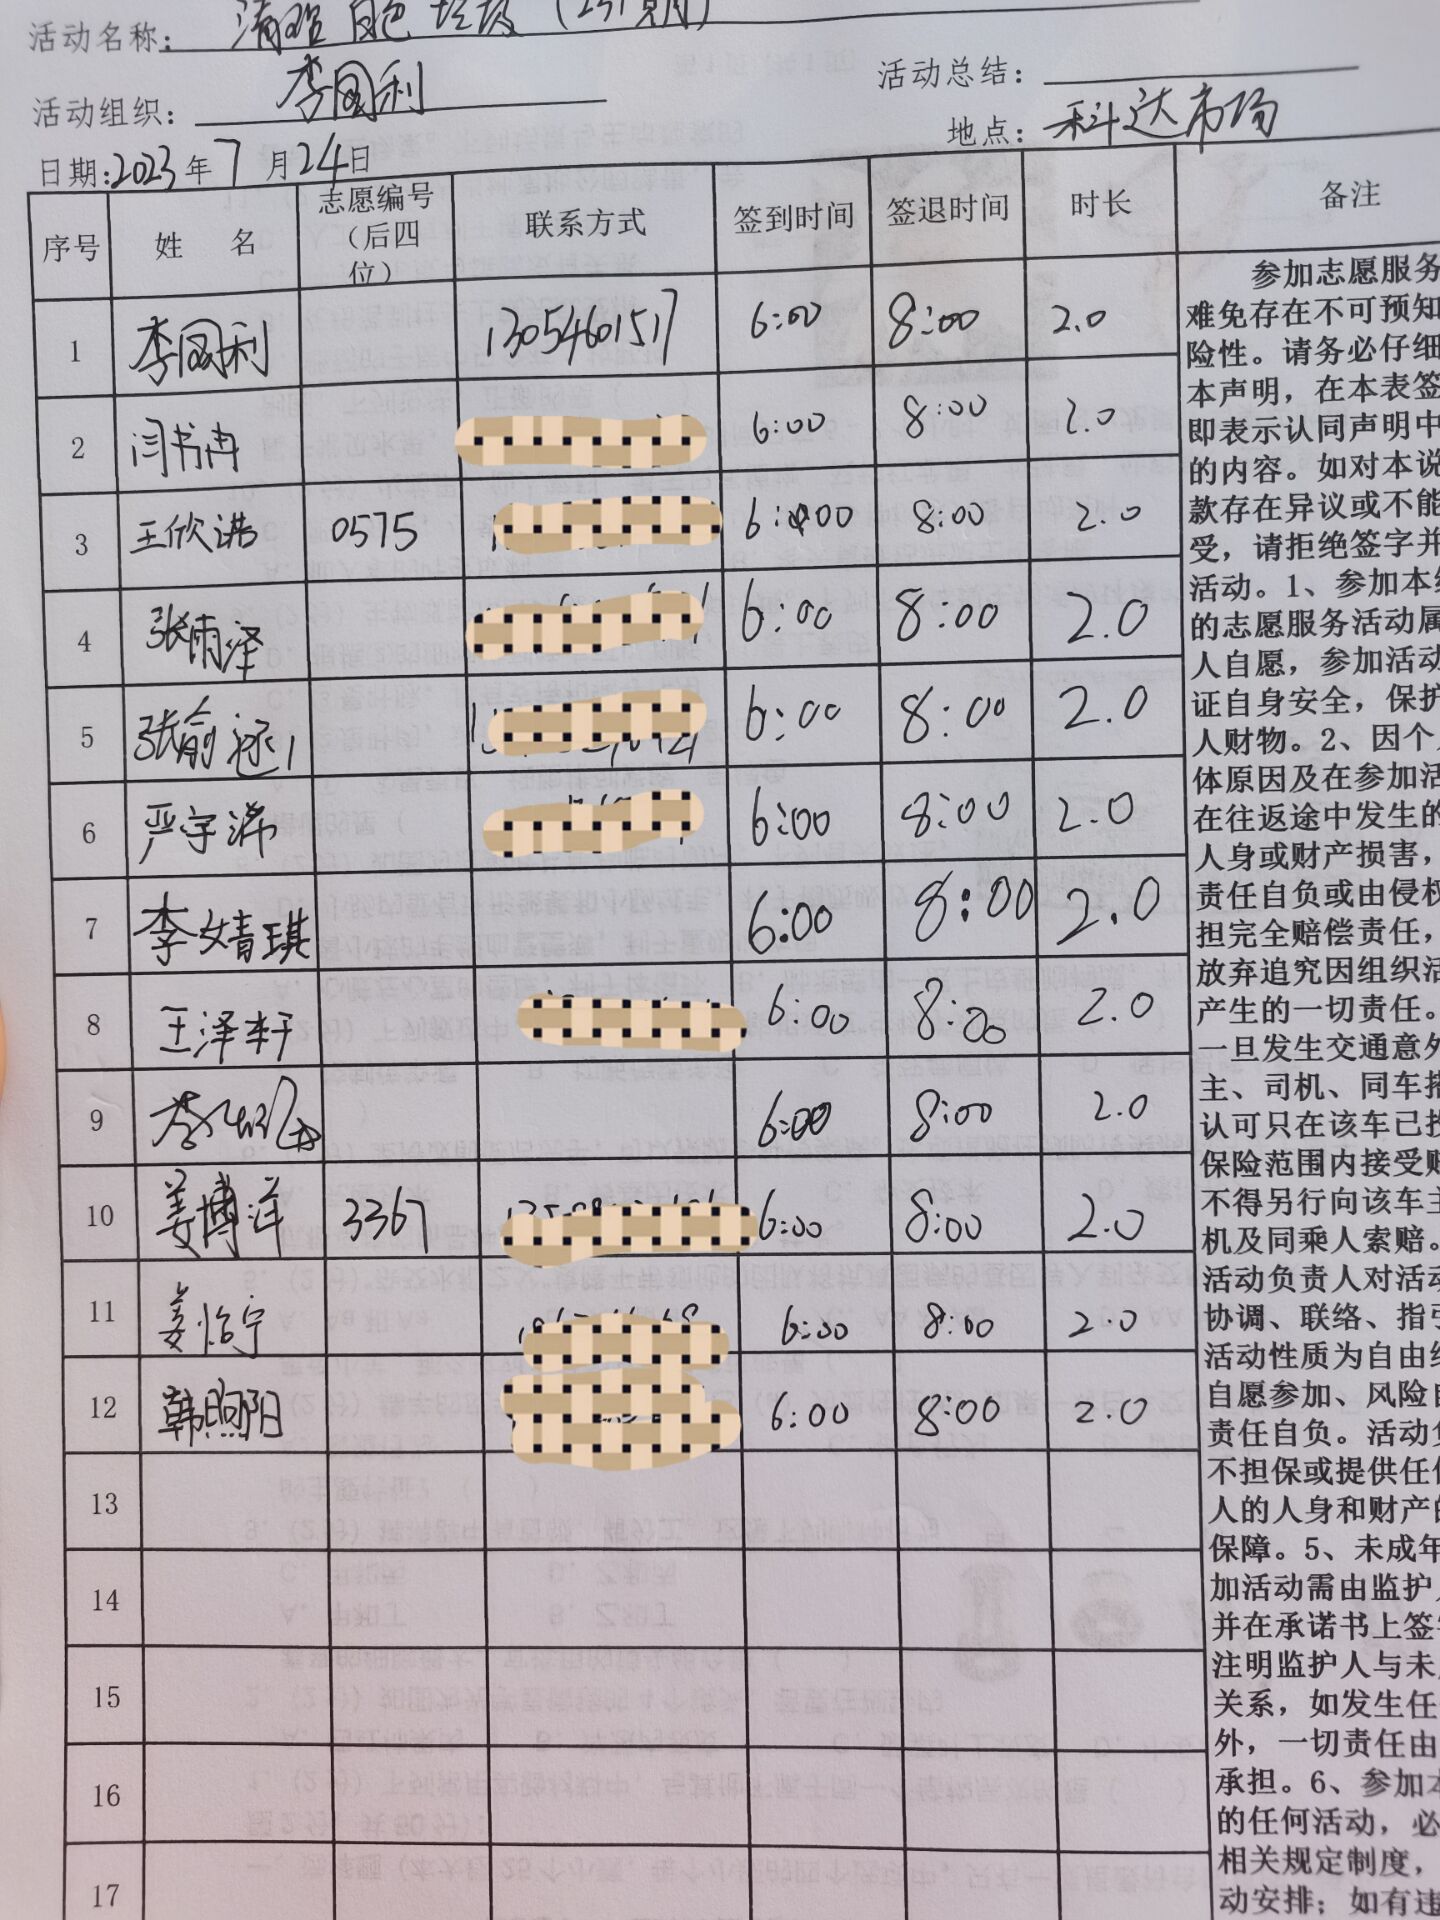 活动名称：清除白色垃圾
活动组织：李国利 活动总结：
日期:2023年7月24日 地点：科达市场
序号 姓 名 志愿编号（后四位） 联系方式 签到时间 签退时间 时长 备注
1 李国利 13054601517 6:00 8:00 2.0
2 闫书冉 6:00 8:00 2.0
3 王欣浩 0575 6:00 8:00 2.0
4 张雨泽 6:00 8:00 2.0
5 张俞 6:00 8:00 2.0
6 严宇浠 6:00 8:00 2.0
7 李婧琪 6:00 8:00 2.0
8 王泽轩 6:00 8:00 2.0
9 李 6:00 8:00 2.0
10 姜博洋 3367 6:00 8:00 2.0
11 姜怡宁 6:00 8:00 2.0
12 韩煦阳 6:00 8:00 2.0
13
14
15
16
17
参加志愿服务
难免存在不可预知
险性。请务必仔细
本声明，在本表签
即表示认同声明中
的内容。如对本说
款存在异议或不能
受，请拒绝签字并
活动。1、参加本组
的志愿服务活动属
人自愿，参加活动
证自身安全，保护
人财物。2、因个
体原因及在参加活
在往返途中发生的
人身或财产损害，
责任自负或由侵权
担完全赔偿责任，
放弃追究因组织活
产生的一切责任。
一旦发生交通意外
主、司机、同车搭
认可只在该车已投
保险范围内接受赔
不得另行向该车主
机及同乘人索赔。
活动负责人对活动
协调、联络、指引
活动性质为自由组
自愿参加、风险自
责任自负。活动负
不担保或提供任何
人的人身和财产的
保障。5、未成年
加活动需由监护
并在承诺书上签字
注明监护人与未
关系，如发生任
外，一切责任由
承担。6、参加本
的任何活动，必
相关规定制度，
动安排；如有违